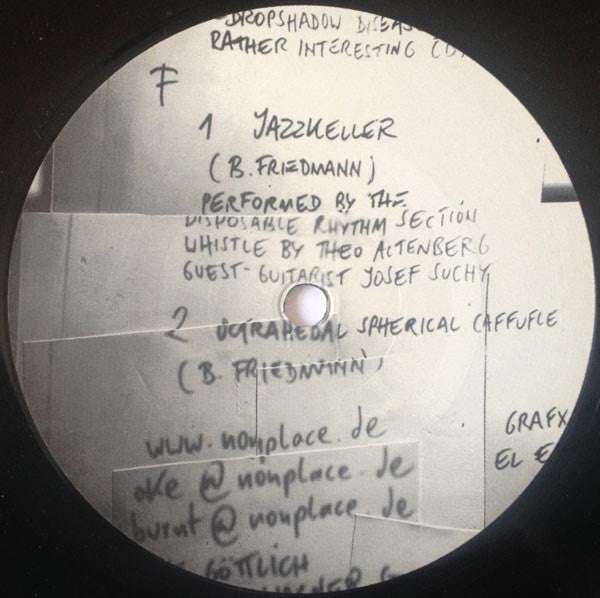 DROPSHADOW DISEASE
RATHER INTERESTING CD
F
1 JAZZKELLER
(B. FRIEDMANN)
PERFORMED BY THE
DISPOSABLE RHYTHM SECTION
WHISTLE BY THEO ALTENBERG
GUEST-GUITARIST JOSEF SUCHY
2 SPHERICAL CAFFUFLE
(B. FRIEDMANN)
www.nonplace.de
oke@nonplace.de
burnt@nonplace.de
GRAFX
EL
GÖTTLICH